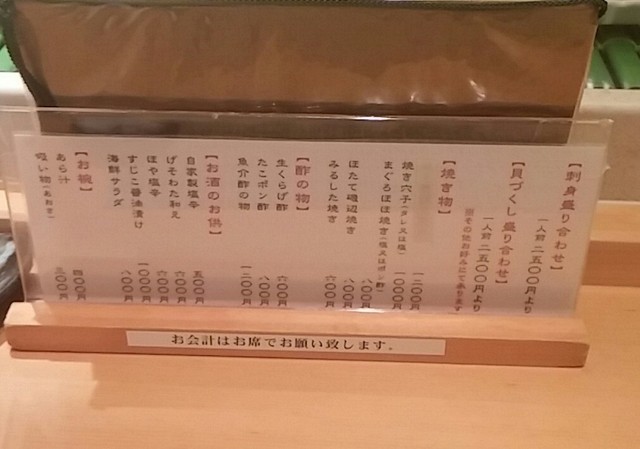 【刺身盛り合わせ】
一人前 二五〇〇円より
【貝づくし盛り合わせ】
一人前 二五〇〇円より
※その他お好みにて承ります
【焼き物】
焼き穴子(タレ又は塩) 一二〇〇円
まぐろほほ焼き(塩又はポン酢) 一〇〇〇円
ほたて磯辺焼き 八〇〇円
みるした焼き 六〇〇円
【酢の物】
生くらげ酢 六〇〇円
たこポン酢 八〇〇円
魚介酢の物 一二〇〇円
【お酒のお供】
自家製塩辛 五〇〇円
げそわた和え 六〇〇円
ほや塩辛 六〇〇円
すじこ醤油漬け 一〇〇〇円
海鮮サラダ 八〇〇円
【お椀】
あら汁 四〇〇円
吸い物(あおさ) 三〇〇円
お会計はお席でお願い致します。